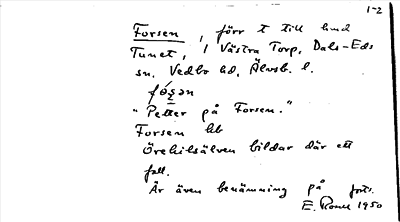 1-2
Forsen, förr t till hmd
Tunet, i Västra Torp, Dals-Eds
sn, Vedbo hd, Älvsb. l.
"Petter på Forsen."
Forsen bb
Örekilsälven bildar där ett
fall.
Är även benämning på forts.
E. 1950